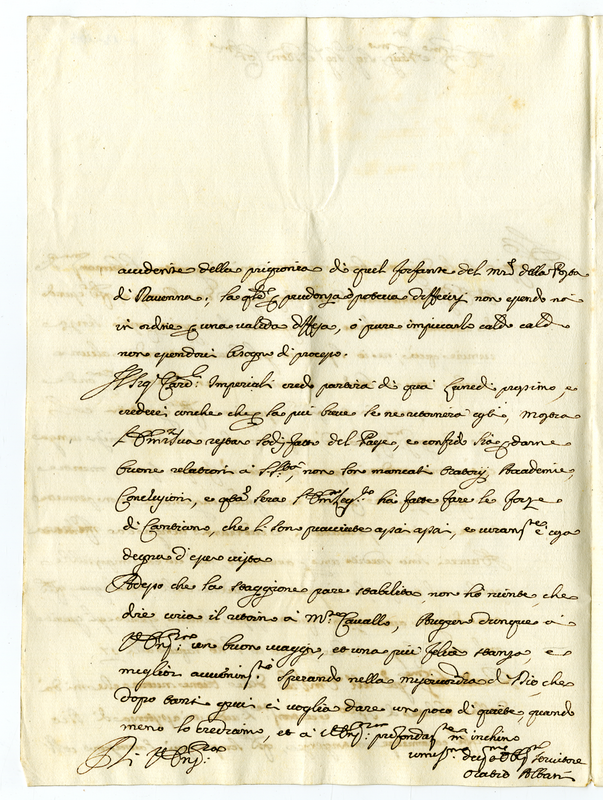 accidente della prigionia di quel forfante del mrõ della Posta
di Ravenna; la qle p prudenza poteva differirsi non essendo noi
in ordine p una valida difesa, ò pure impiccarlo caldo caldo
non essendovi bisogno di processo.
Il Sigr Card: Imperiali credo partirà di qua Lunedi prossimo, e
crederei anche che p la più breve se ne ritornerà costì, mostra
l'Emza Sua restar sodisfatta del Paese, e confido sia p darne
buone relationi à, non son mancati Oratorij, Accademie,
Conclusioni, e qta sera l'Emo Leg:to hà fatto fare le forze
di Canbiano, che li son piaciute assai assai, e veramte è cosa
degna d'esser vista
Adesso che la staggione pare stabilita non ho niente che
dire circa il ritorno à Mte Cavallo, Auguro dunque à
V Em: un buon viaggio, et una più felice stanza, e
miglior avvenimto sperando nella misericordia d'Dio che
dopo tanti guai ci voglia dare un poco di quiete quando
meno lo crediamo, et à V Em: profondamte m'inchino
Di V Em:
umilissmo devmo obbmo servitore
Orazio Albani